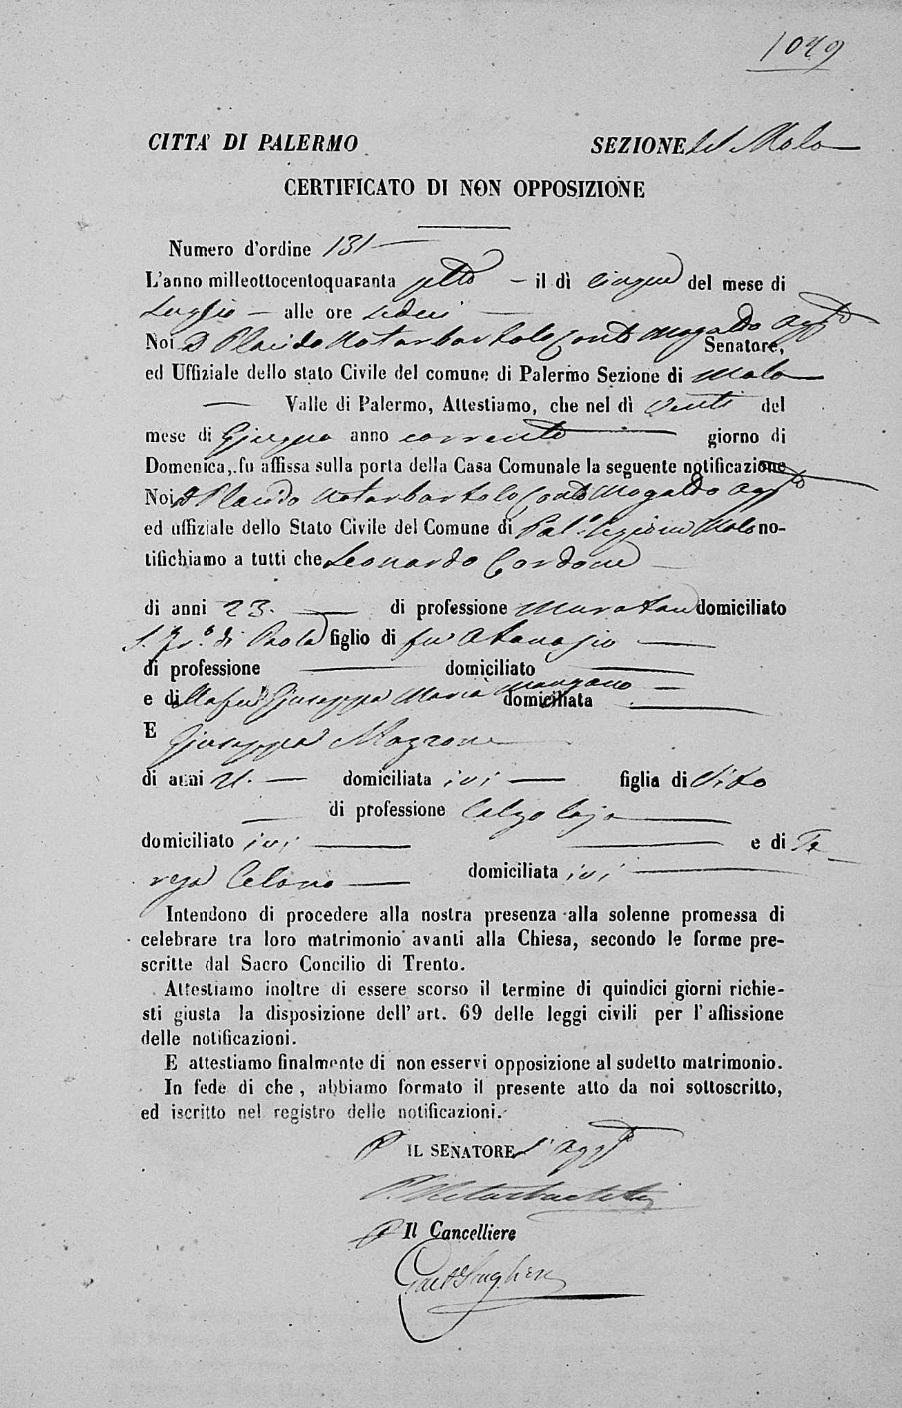 1049
CITTA' DI PALERMO SEZIONE del Molo
CERTIFICATO DI NON OPPOSIZIONE
Numero d'ordine 131
L'anno milleottocentoquaranta otto – il dì cinque del mese di
Luglio – alle ore sedici
Noi D. Placido Notarbartolo Conte Aggto Senatore,
ed Uffiziale dello stato Civile del comune di Palermo Sezione di Molo
Valle di Palermo, Attestiamo, che nel dì venti del
mese di Giugno anno corrente giorno di
Domenica, fu affissa sulla porta della Casa Comunale la seguente notificazione
Noi D. Placido Notarbartolo Conte Aggto
ed uffiziale dello Stato Civile del Comune di Pal.o Sezione Molo no-
tifichiamo a tutti che Leonardo Cordone
di anni 23. di professione domiciliato
S. Fr.o di Paola figlio di fu Atanasio
di professione domiciliato
e di Giuseppa Maria Mangano domiciliata
E Giuseppa Mazzone
di anni 21. domiciliata ivi figlia di Vito
di professione Calzolajo
domiciliato ivi e di Te-
resa domiciliata ivi
Intendono di procedere alla nostra presenza alla solenne promessa di
celebrare tra loro matrimonio avanti alla Chiesa, secondo le forme pre-
scritte dal Sacro Concilio di Trento.
Attestiamo inoltre di essere scorso il termine di quindici giorni richie-
sti giusta la disposizione dell'art. 69 delle leggi civili per l'affissione
delle notificazioni.
E attestiamo finalmente di non esservi opposizione al sudetto matrimonio.
In fede di che, abbiamo formato il presente atto da noi sottoscritto,
ed iscritto nel registro delle notificazioni.
P IL SENATORE l'Aggto
P. Notarbartolo
P Il Cancelliere